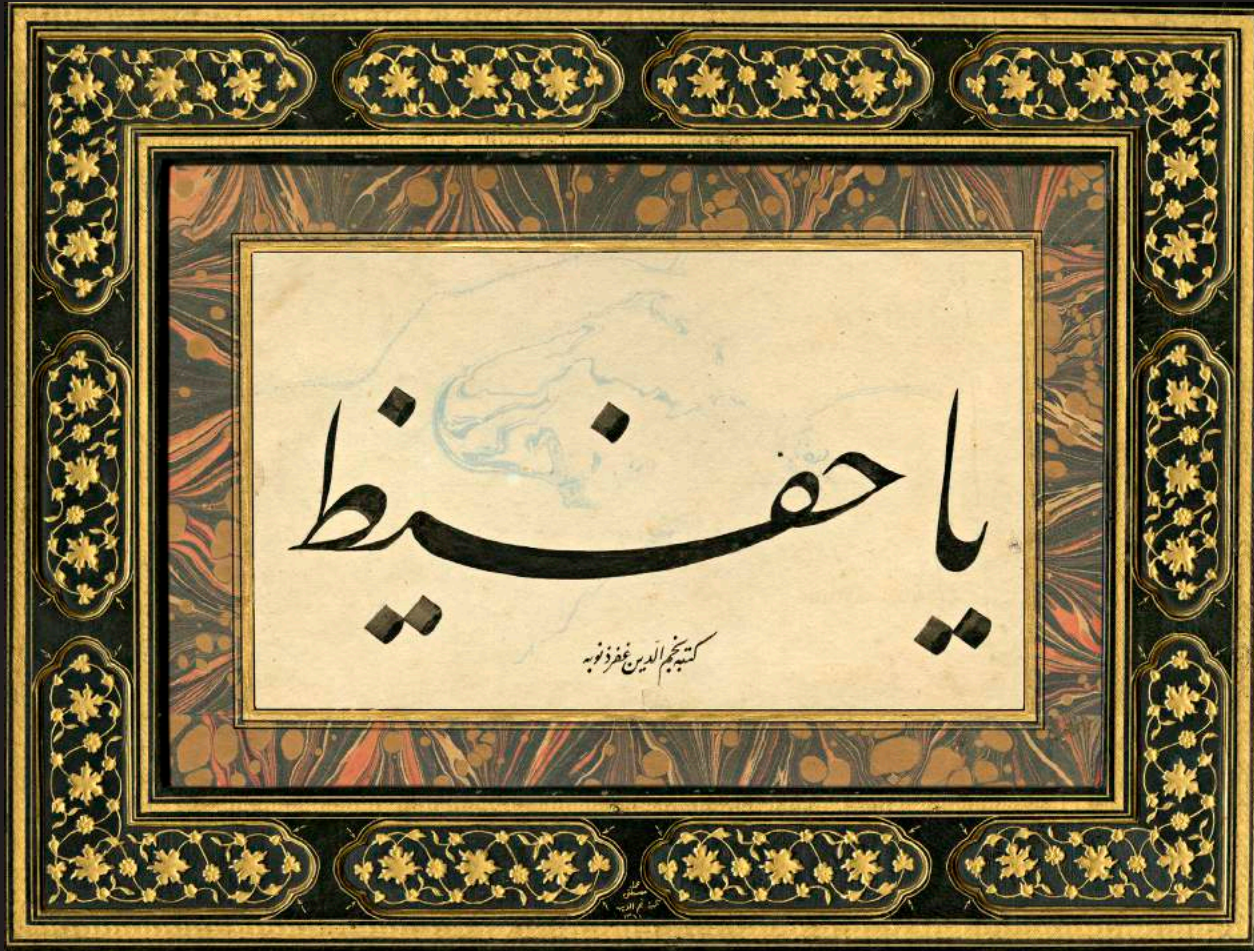 يا حفيظ
كتبه نجم الدين غفر ذنوبه